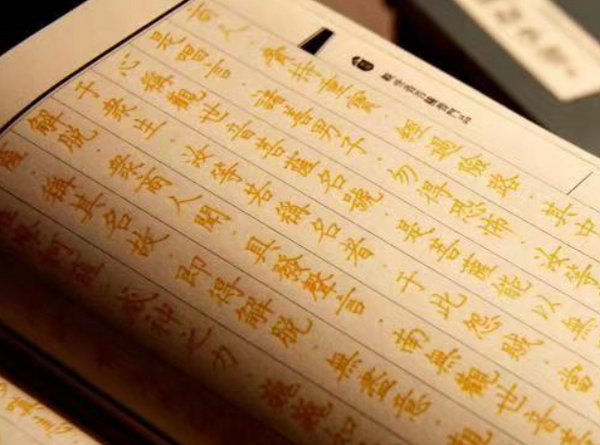 觀世音菩薩普門品
商人．齎持重寶．經過險路．其中
是唱言．諸善男子．勿得恐怖．汝等
心稱觀世音菩薩名號．是菩薩能以無
于眾生．汝等若稱名者．于此怨賊．當
解脫．眾商人聞．具發聲言．南無觀世音菩
薩．稱其名故．即得解脫．無盡意．觀
薩．威神之力．巍巍如